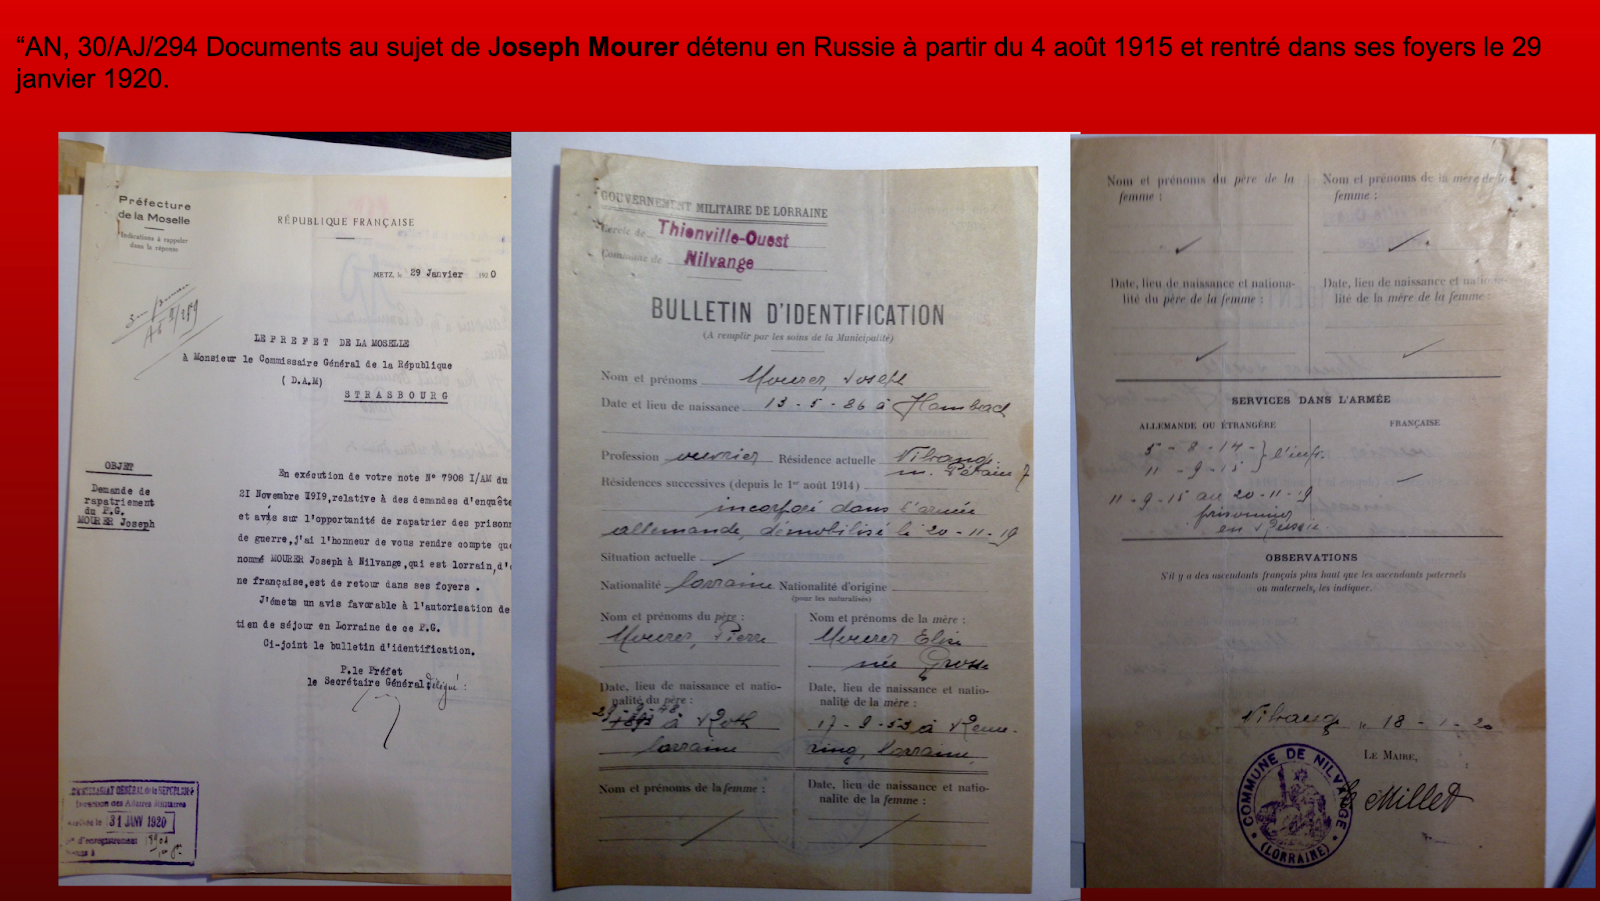 “AN, 30/AJ/294 Documents au sujet de Joseph Mourer détenu en Russie à partir du 4 août 1915 et rentré dans ses foyers le 29
janvier 1920.
Préfecture
de la Moselle
Indications à rappeler
dans la réponse
RÉPUBLIQUE FRANÇAISE
METZ, le 29 Janvier 1920
LE PREFET DE LA MOSELLE
à Monsieur le Commissaire Général de la République
( D.A.M)
STRASBOURG
OBJET
Demande de
rapatriement
du P.G.
MOURER Joseph
En exécution de votre note N° 7908 I/AM du
21 Novembre 1919,relative à des demandes d'enquête
et avis sur l'opportunité de rapatrier des prisonn
de guerre,j'ai l'honneur de vous rendre compte que
nommé MOURER Joseph à Nilvange,qui est lorrain,d'o
ne française,est de retour dans ses foyers .
J'émets un avis favorable à l'autorisation de
tien de séjour en Lorraine de ce P.G.
Ci-joint le bulletin d'identification.
P.le Préfet
le Secrétaire Général délégué :
COMMISSARIAT GÉNÉRAL de la RÉPUBLIQUE
Direction des Affaires Militaires
31 JANV 1920
d'enregistrement
GOUVERNEMENT MILITAIRE DE LORRAINE
Cercle de Thionville-Ouest
Commune de Nilvange
BULLETIN D'IDENTIFICATION
(A remplir par les soins de la Municipalité)
Nom et prénoms Mourer, Joseph
Date et lieu de naissance 13 - 5 - 86 à Hambach
Profession ouvrier Résidence actuelle Nilvange
Pétain 7
Résidences successives (depuis le 1er août 1914)
incorporé dans l'armée
allemande, démobilisé le 20 - 11 - 19
Situation actuelle
Nationalité lorraine Nationalité d'origine
(pour les naturalisés)
Nom et prénoms du père :
Mourer, Pierre
Nom et prénoms de la mère :
Mourer Elise
née Grosse
Date, lieu de naissance et natio-
nalité du père :
48 à Roth
lorraine
Date, lieu de naissance et natio-
nalité de la mère :
17 - 9 - 53 à Reme-
ring, lorraine
Nom et prénoms de la femme :
Date, lieu de naissance et natio-
nalité de la femme :
Nom et prénoms du père de la
femme :
Nom et prénoms de la mère de la
femme :
Date, lieu de naissance et nationa-
lité du père de la femme :
Date, lieu de naissance et natio-
lité de la mère de la femme :
SERVICES DANS L'ARMÉE
ALLEMANDE OU ÉTRANGÈRE
FRANÇAISE
5 - 8 - 14 -
11 - 9 - 15 } l'infr.
11 - 9 - 15 au 20 - 11 - 19
prisonnier
en Russie.
OBSERVATIONS
S'il y a des ascendants français plus haut que les ascendants paternels
ou maternels, les indiquer.
Nilvange le 18 - 1 - 20
LE MAIRE,
Millet
COMMUNE DE NILVANGE
(LORRAINE)